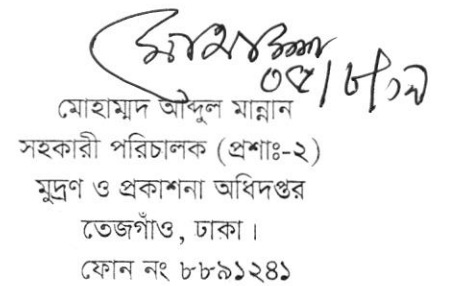 ০৫/৮/১৯
মোহাম্মদ আব্দুল মান্নান
সহকারী পরিচালক (প্রশাঃ-২)
মুদ্রণ ও প্রকাশনা অধিদপ্তর
তেজগাঁও, ঢাকা।
ফোন নং ৮৮৯১২৪১